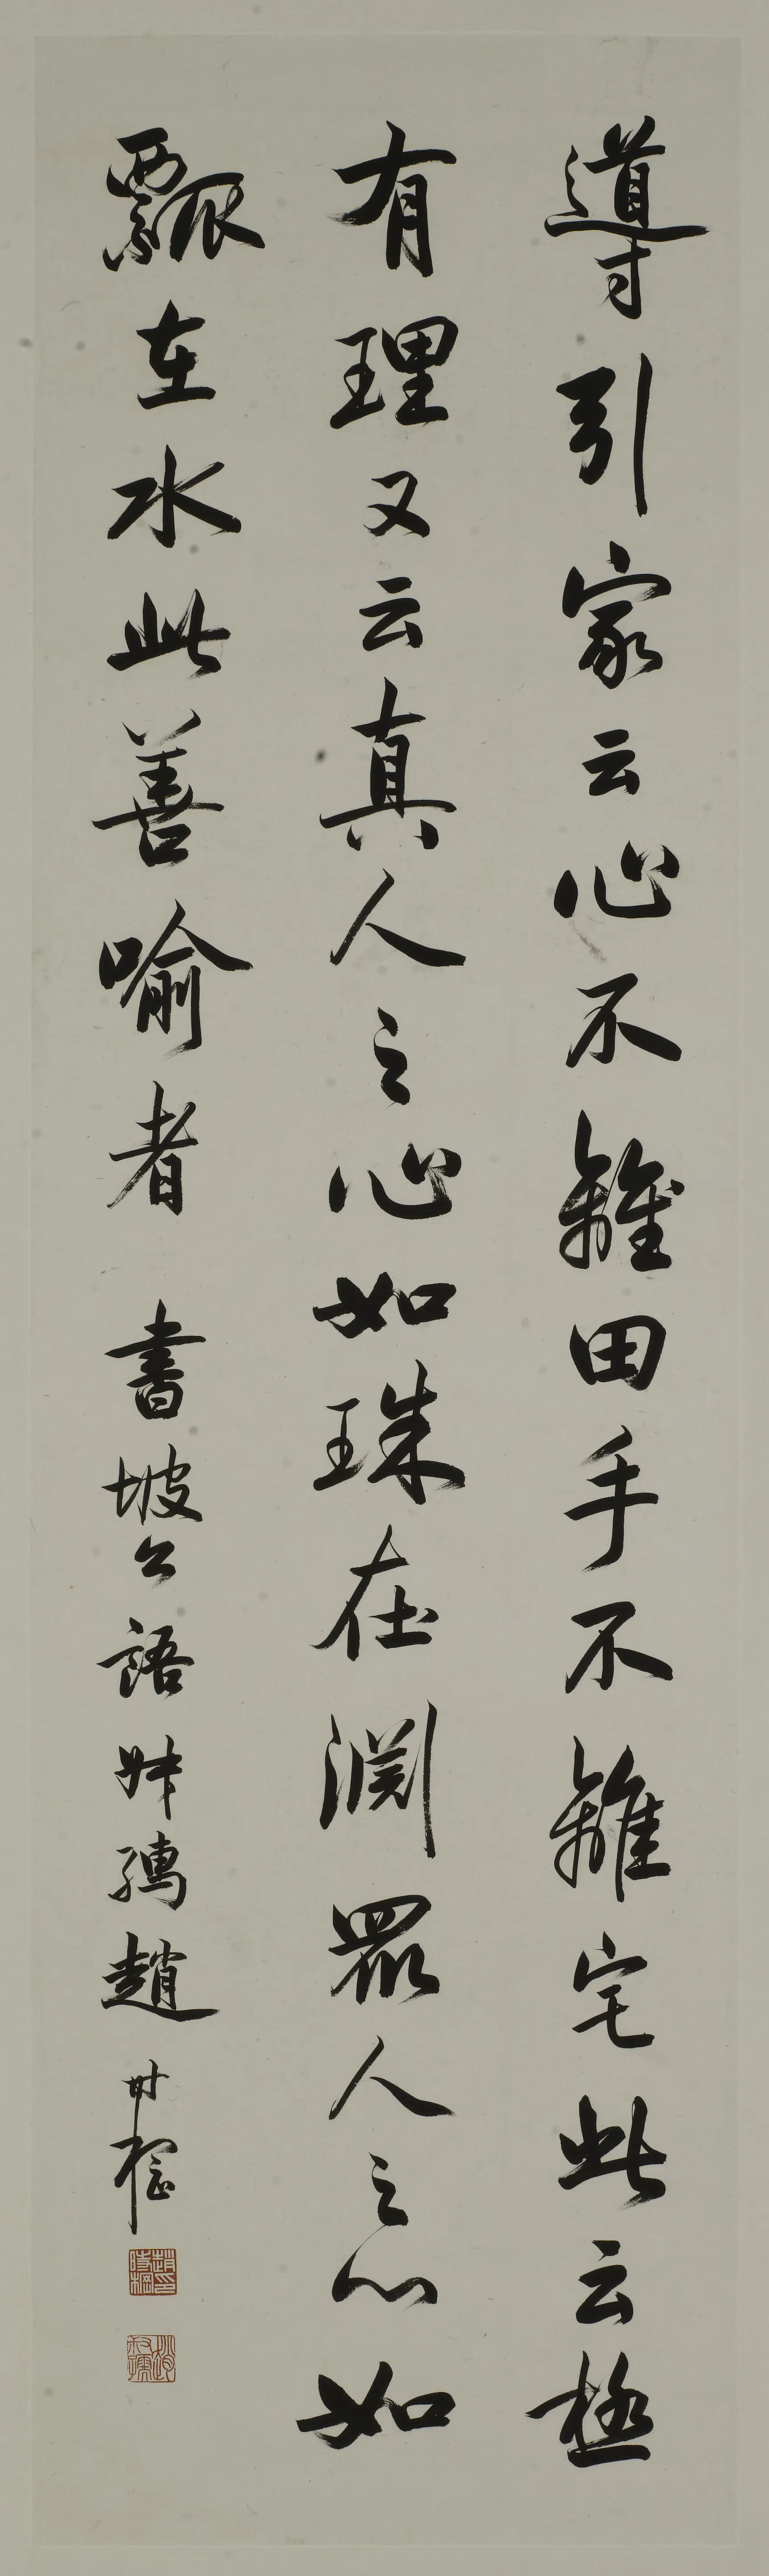 導引家云心不離田手不離宅此云極
有理又云真人之心如珠在淵眾人之心如
瓢在水此善喻者 書坡公語 叔孺趙時棡
趙印時棡
趙叔孺